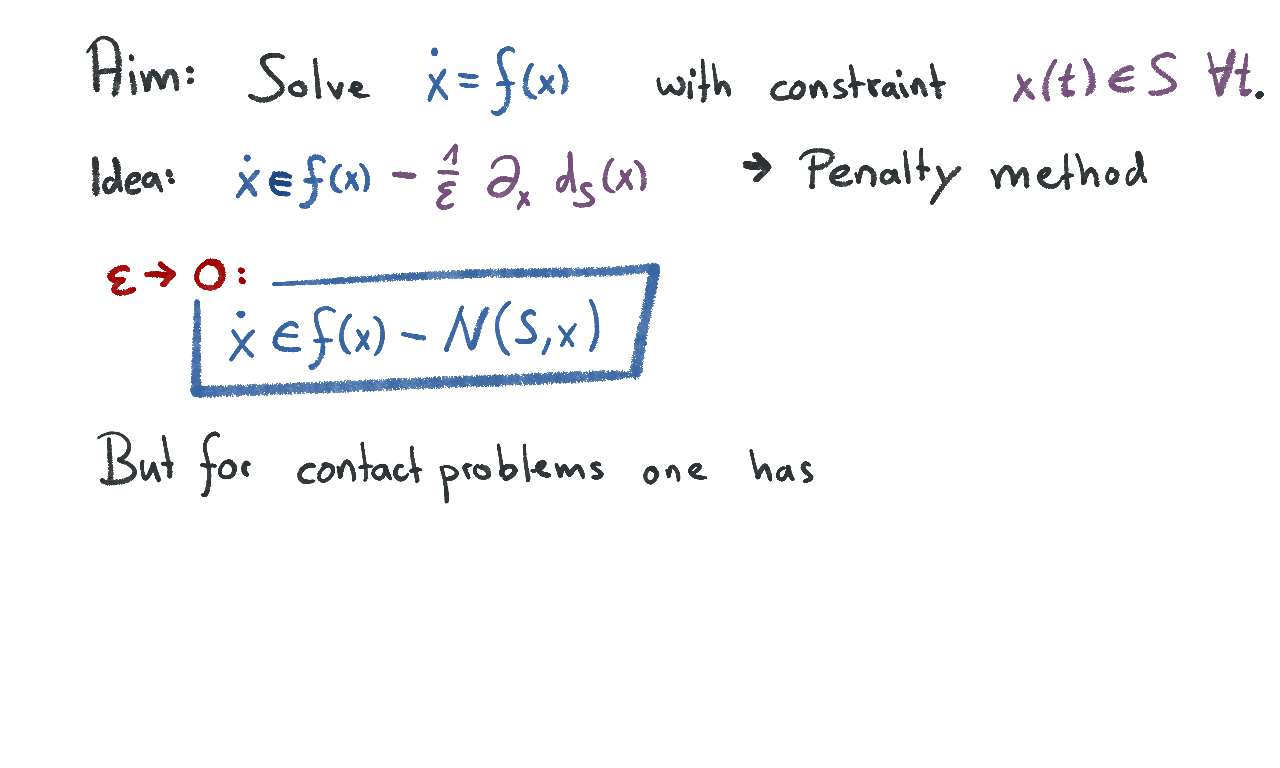 Aim: Solve ẋ = f(x) with constraint x(t) ∈ S ∀t.
Idea: ẋ ∈ f(x) − 1/ε ∂ₓ d_S(x) → Penalty method
ε → 0:
ẋ ∈ f(x) − N(S,x)
But for contact problems one has